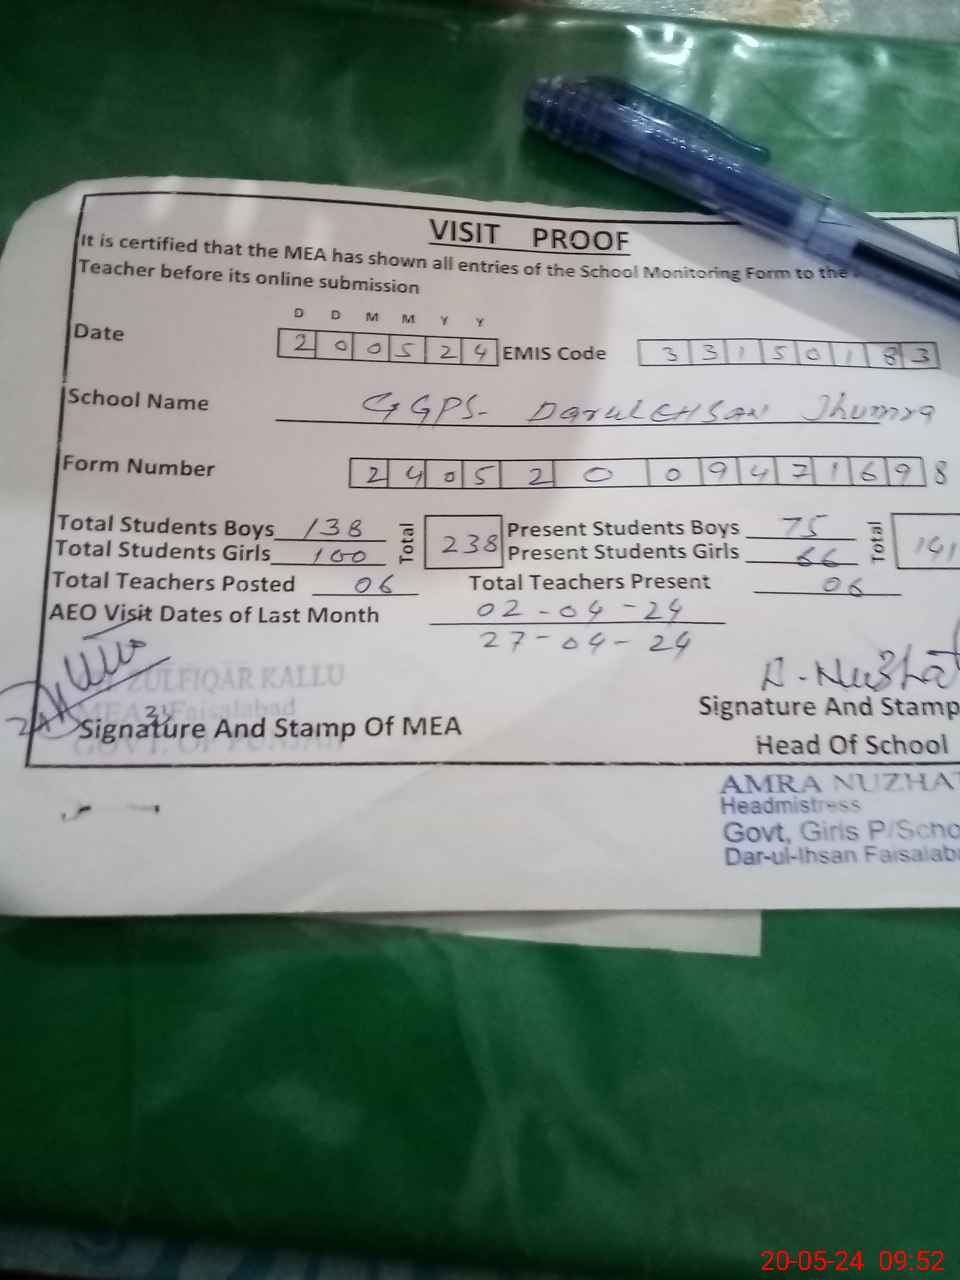 VISIT PROOF
It is certified that the MEA has shown all entries of the School Monitoring Form to the
Teacher before its online submission
D D M M Y Y
Date 2 0 0 5 2 4 EMIS Code 3 3 1 5 0 1 8 3
School Name GGPS- DarulEHSAN Jhumra
Form Number 2 4 0 5 2 0 0 9 4 7 1 6 9 8
Total Students Boys 138 Total 238 Present Students Boys 75 Total 141
Total Students Girls 100 Present Students Girls 66
Total Teachers Posted 06 Total Teachers Present 06
AEO Visit Dates of Last Month 02-04-24
27-04-24
ZULFIQAR KALLU A-Nuzhat
MEA Faisalabad
Signature And Stamp Of MEA Signature And Stamp
GOVT. OF PUNJAB Head Of School
AMRA NUZHAT
Headmistress
Govt, Girls P/Scho
Dar-ul-Ihsan Faisalaba
20-05-24 09:52